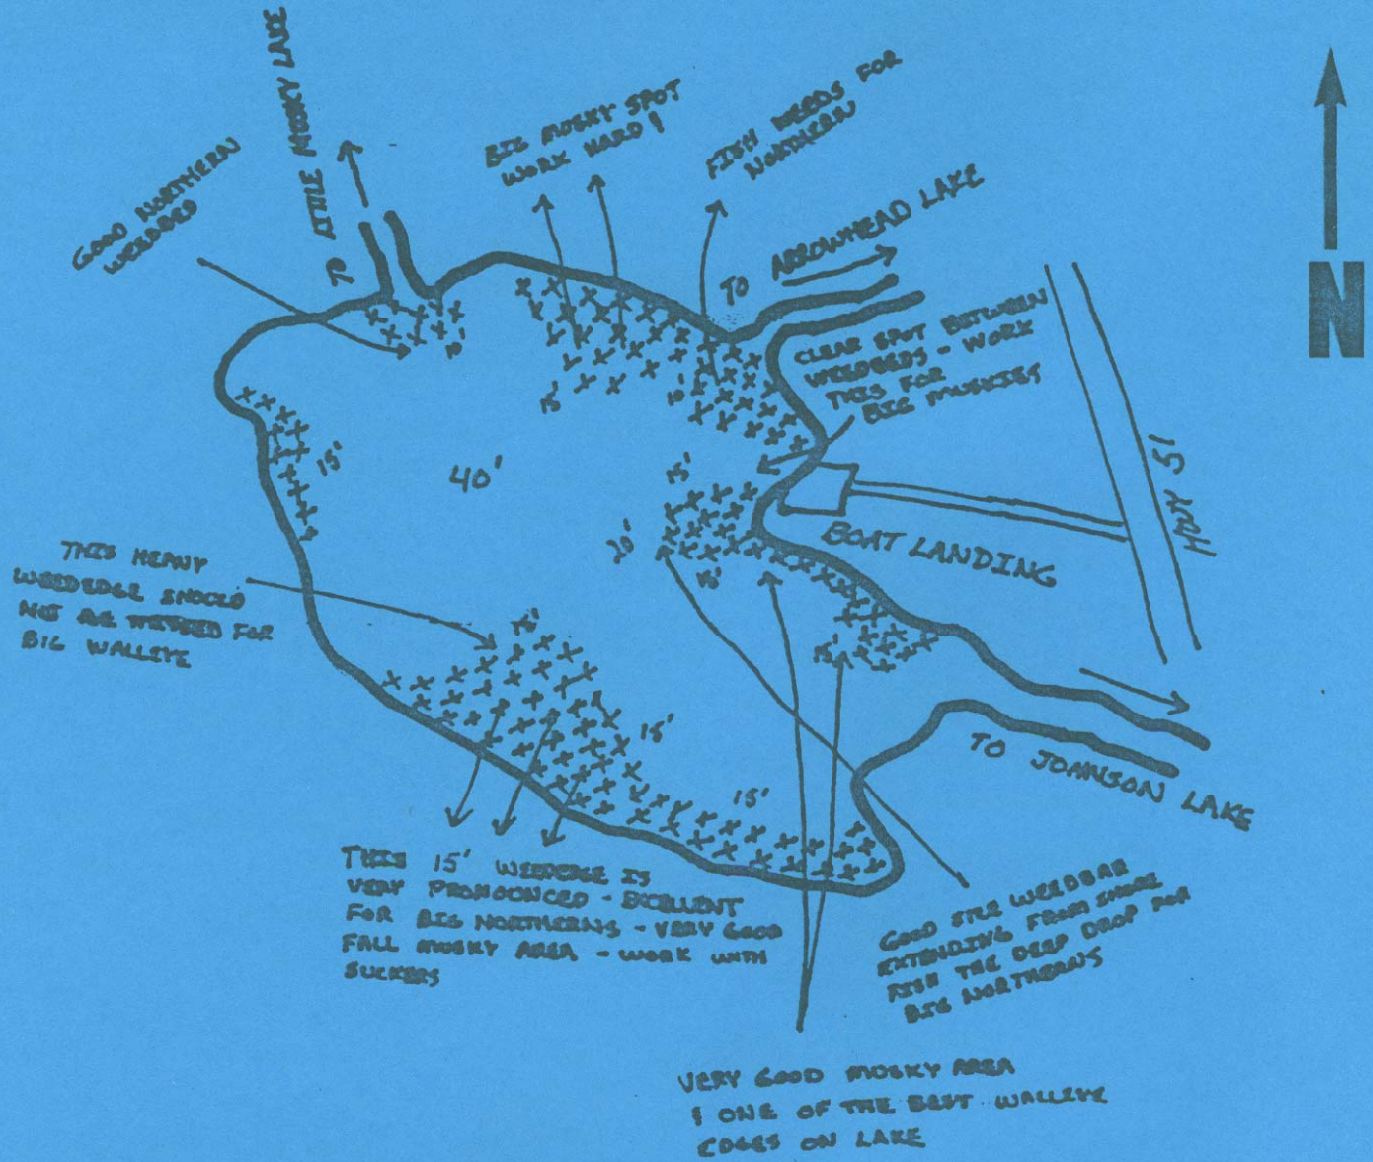 TO LITTLE MUSKY LAKE
GOOD NORTHERN
WEEDBED
BIG MUSKY SPOT
WORK HARD !
FISH WEEDS FOR
NORTHERN
TO ARROWHEAD LAKE
N
CLEAR SPOT BETWEEN
WEEDBEDS - WORK
THIS FOR
BIG MUSKIES
10'
15'
10'
15'
40'
15'
20'
15'
HWY 51
BOAT LANDING
THIS HEAVY
WEEDEDGE SHOULD
NOT BE MISSED FOR
BIG WALLEYE
15'
15'
15'
15'
TO JOHNSON LAKE
THIS 15' WEEDEDGE IS
VERY PRONOUNCED - EXCELLENT
FOR BIG NORTHERNS - VERY GOOD
FALL MUSKY AREA - WORK WITH
SUCKERS
GOOD SIZE WEEDBAR
EXTENDING FROM SHORE
FISH THE DEEP DROP FOR
BIG NORTHERNS
VERY GOOD MUSKY AREA
! ONE OF THE BEST WALLEYE
EDGES ON LAKE